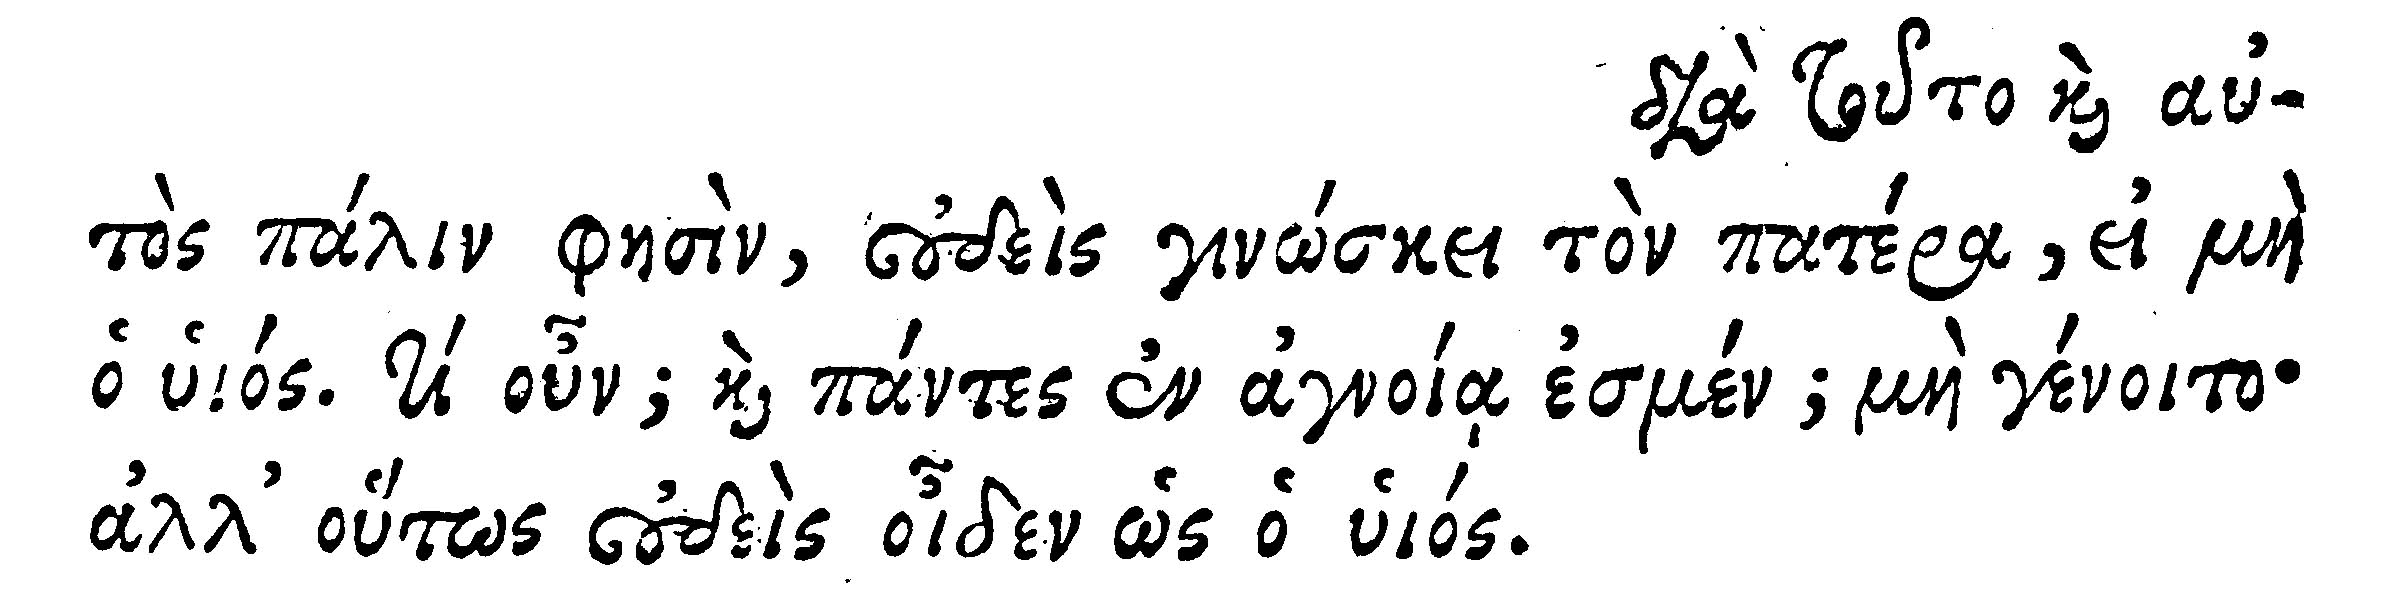 διὰ τοῦτο καὶ αὐ-
τὸς πάλιν φησὶν, οὐδεὶς γινώσκει τὸν πατέρα, εἰ μὴ
ὁ υἱός. τί οὖν; καὶ πάντες ἐν ἀγνοίᾳ ἐσμέν; μὴ γένοιτο·
ἀλλ' οὕτως οὐδεὶς οἶδεν ὡς ὁ υἱός.